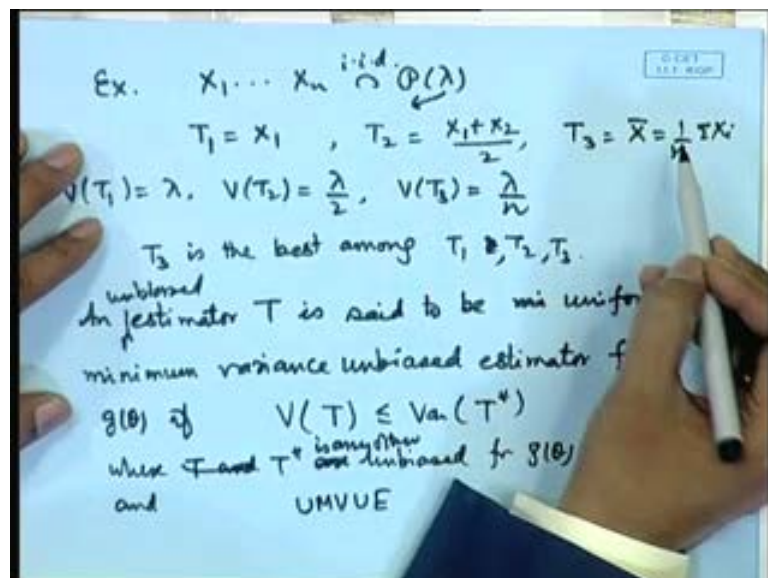 Ex. X₁ ... Xₙ i.i.d. ~ P(λ)
T₁ = X₁ , T₂ = (X₁+X₂)/2, T₃ = X̄ = 1/n ΣXᵢ
V(T₁) = λ, V(T₂) = λ/2, V(T₃) = λ/n
T₃ is the best among T₁, T₂, T₃.
unbiased
An estimator T is said to be unifo
minimum variance unbiased estimator f
g(θ) if V(T) ≤ Var(T*)
is any other
where T* unbiased for g(θ)
and UMVUE